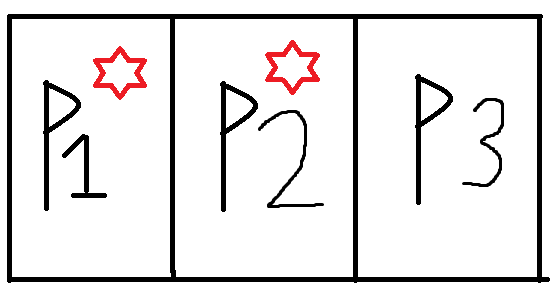 P1 P2 P3